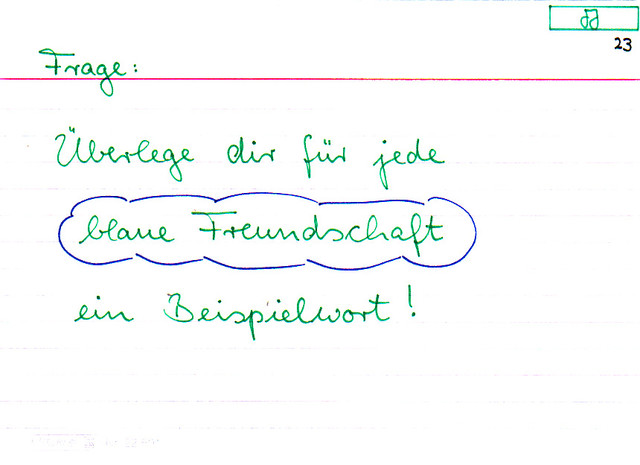 23
Frage:
Überlege dir für jede
blaue Freundschaft
ein Beispielwort!